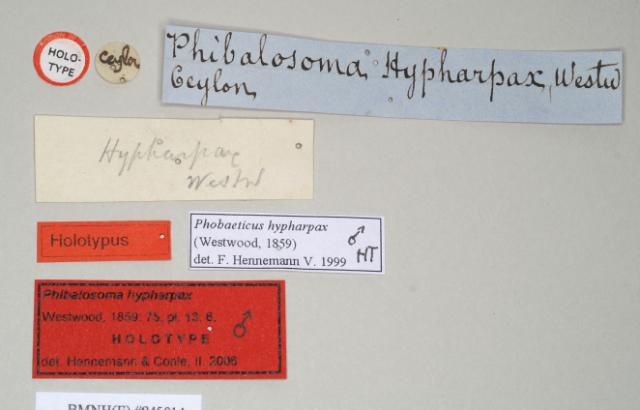 HOLO-
TYPE
Ceylon
Phibalosoma Hypharpax, Westw
Ceylon
Hypharpax
Westw
Holotypus
Phobaeticus hypharpax
(Westwood, 1859)
det. F. Hennemann V. 1999
♂
HT
Phibalosoma hypharpax
Westwood, 1859: 75, pl. 13: 6.
HOLOTYPE
♂
det. Hennemann & Conle, II. 2006
BMNH(E) #845014